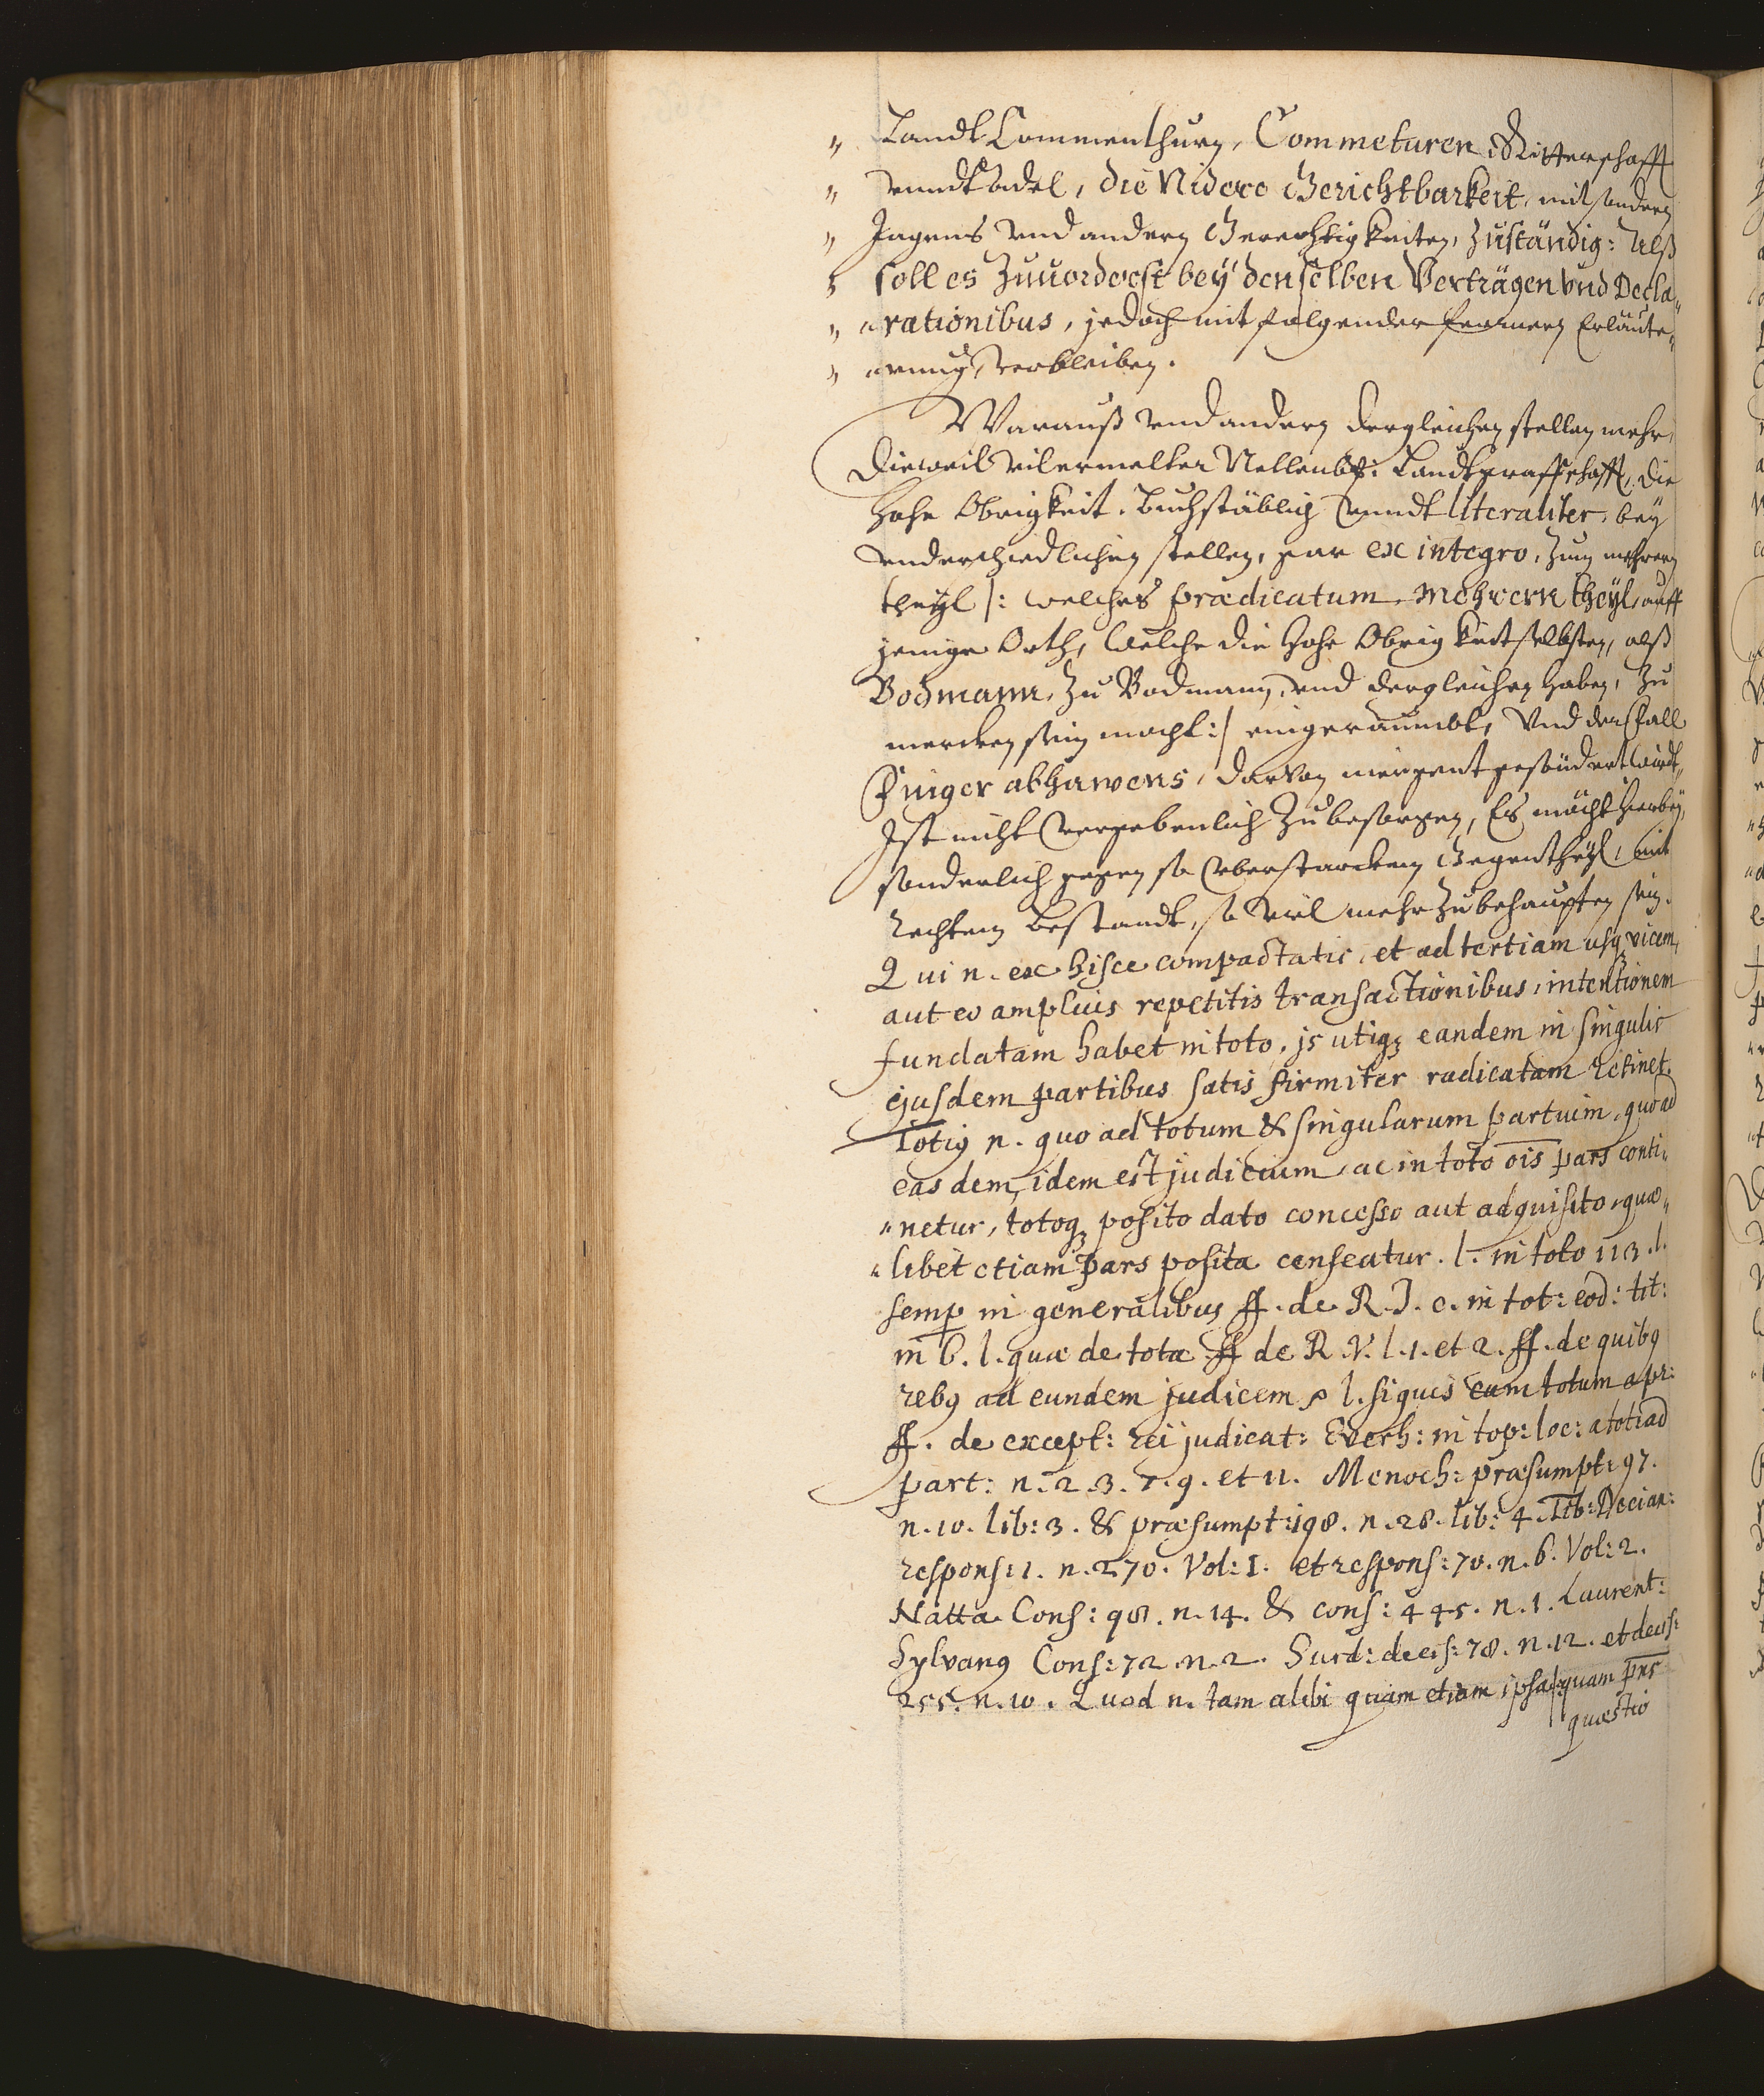 " Landt Commenthurn, Commeturen, Ritterschafft
" vnndt Adel, die Nidere Gerichtbarkeit, mit sondern
" Jagens vnd andern Gerechtigkeiten, zuständig: Alß
" soll es Zuuorderst bey denselben Verträgen vnd Decla„
" „rationibus, jedoch mit folgender fernern Erläute„
" „rung, verbleiben.
Warauß vnd andern dergleichen stellen mehr,
Dieweil vilermelter Nellenb: Landtgraffschafft, die
Hohe Obrigkeit, buchstäblig vnndt literaliter, bey
vnderschiedlichen stellen, gar ex integro, zum mehrern
theyl /: welches prædicatum, Mehrern theyl, auff
jenige Orth, welche die Hohe Obrigkeit selbsten, alß
Bodmann, zu Bodmann, vnd dergleichen haben, Zu
mercken sein mocht :/ eingeraumbt, Vnd der fall
Finger abhawens, darvon niergent gesöndert wirdt,
Ist nicht vergebenlich Zubesorgen, Es möcht hierbey,
sonderlich gegen so vberstarckem Gegentheyl, mit
Rechtem Bestandt, so viel mehr Zubehaupten sein.
Qui n. ex hisce compactatis, et ad tertiam usq vicem,
aut eo amplius repetitis transactionibus, intentionem
fundatam habet in toto, js utiq3 eandem in singulis
ejusdem partibus satis firmiter radicatam retinet.
Totiq n. quo ad totum & singularum partium, quo ad
easdem, idem est judicium, ac in toto ois pars conti„
„netur, totoq3 posito dato concesso aut adquisito, quæ„
„libet etiam pars posita censeatur. l. in toto 113. l.
semp in generalibus ff. de R. J. c. in tot: eod: tit:
in 6. l. quæ de tota ff de R. V. l. 1. et 2. ff. de quibq
rebq ad eundem judicem l. siquis cum totum a pr:
ff. de except: rei judicat: Everh: in top: loc: a toti ad
part: n. 2. 3. 7. 9. et 11. Menoch: præsumpt: 97.
n. 10. lib: 3. & præsumpt: 198. n. 28. lib: 4. Tib: Decian:
respons: 1. n. 270. Vol: I. et respons: 70. n. 6. Vol: 2.
Natta Cons: 98. n. 14. & cons: 445. n. 1. Laurent:
Sylvanq Cons: 72. n. 2. Surd: decis: 78. n. 12. et decis:
255. n. 10. Quod n. tam alibi quam etiam ipsa quam pns
quæstio